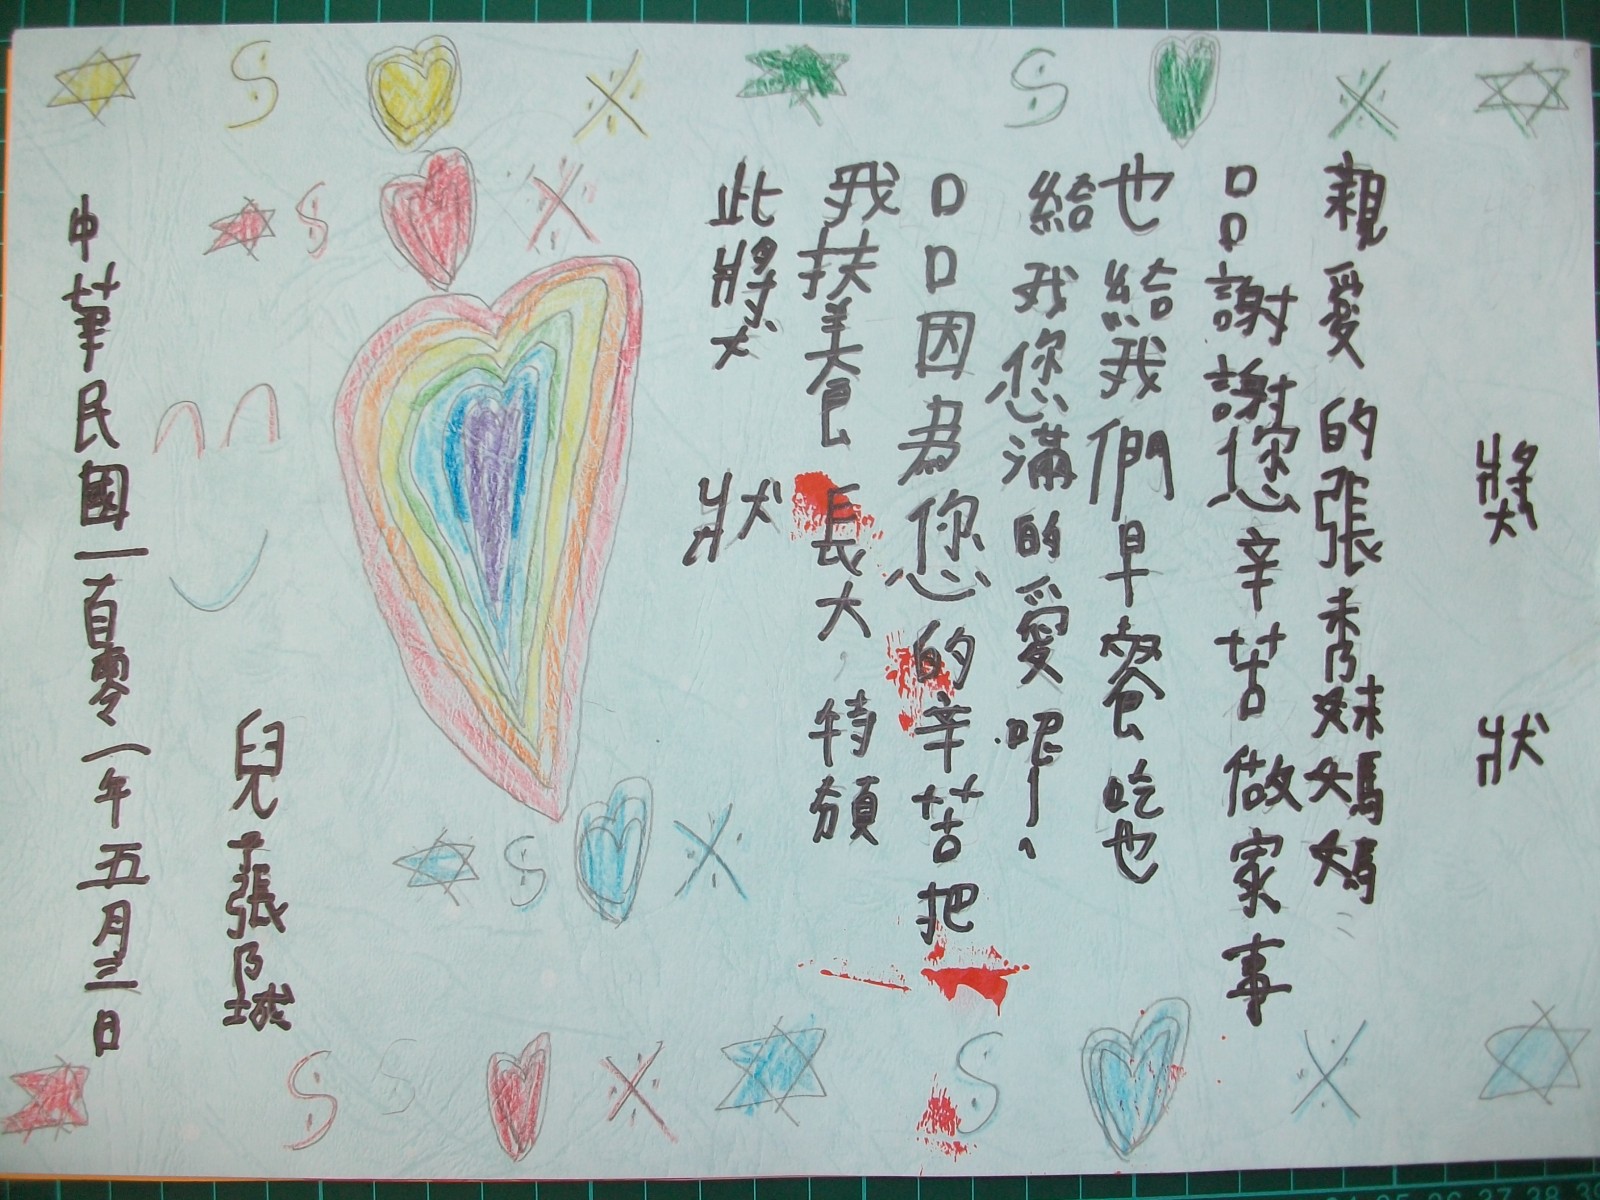 獎狀
親愛的張秀妹媽媽
口口謝謝您辛苦做家事
也給我們早餐吃也
給我您滿的愛呢！、
口口因為您的辛苦把
我扶養長大，特頒
此獎狀
兒張城
中華民國一百零一年五月三日